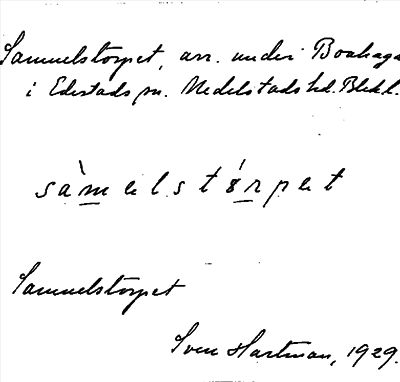 Samuelstorpet, arr. under Boahaga
i Edestads sn. Medelstads hd. Blek l.
sàmelstórpet
Samuelstorpet
Sven Hartman, 1929.